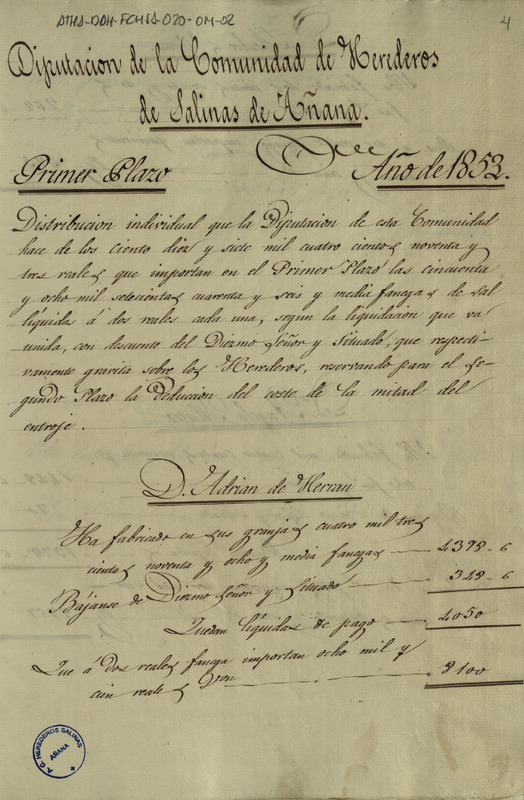 ATHA-DAH-FCHSA-020-OM-02
4
Diputacion de la Comunidad de Herederos
de Salinas de Añana.
Primer Plazo
Año de 1853.
Distribucion individual que la Diputacion de esta Comunidad
hace de los ciento diez y siete mil cuatro cientos noventa y
tres reales que importan en el Primer Plazo las cincuenta
y ocho mil setecientas cuarenta y seis y media fanegas de sal
líquida á dos reales cada una, segun la liquidacion que va
unida, con descuento del Diezmo Señor y Situado, que respecti-
vamente gravita sobre los Herederos, reservando para el se-
gundo Plazo la deduccion del coste de la mitad del
entroje.
D. Adrian de Herran
Ha fabricado en sus granjas cuatro mil tres
cientas noventa y ocho y media fanegas 4398-6
Bájanse de Diezmo Señor y Situado 348-6
Quedan líquidas de pago 4050
Que á dos reales fanega importan ocho mil y
cien reales von 8100
A.C. HEREDEROS SALINAS
AÑANA